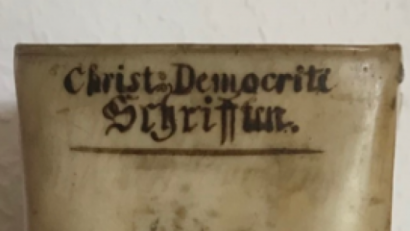 Christ: Democriti
Schrifften.